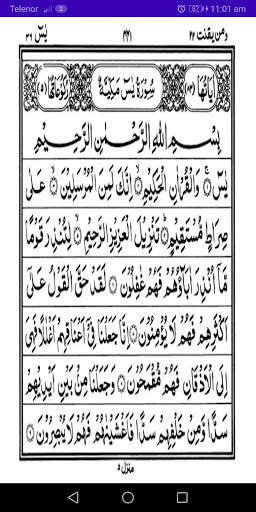 Telenor 11:01 am
يٰسٓ ٣٦ ٤٤١ ومن يقنت ٢٢
اٰيَاتُهَا (٨٣) سُوْرَةُ يٰسٓ مَكِّيَّةٌ رُكُوْعَاتُهَا (٥)
بِسْمِ اللّٰهِ الرَّحْمٰنِ الرَّحِيْمِ
يٰسٓ ۝ وَالْقُرْاٰنِ الْحَكِيْمِ ۝ اِنَّكَ لَمِنَ الْمُرْسَلِيْنَ ۝ عَلٰى
صِرَاطٍ مُّسْتَقِيْمٍ ۝ تَنْزِيْلَ الْعَزِيْزِ الرَّحِيْمِ ۝ لِتُنْذِرَ قَوْمًا
مَّآ اُنْذِرَ اٰبَآؤُهُمْ فَهُمْ غٰفِلُوْنَ ۝ لَقَدْ حَقَّ الْقَوْلُ عَلٰٓى
اَكْثَرِهِمْ فَهُمْ لَا يُؤْمِنُوْنَ ۝ اِنَّا جَعَلْنَا فِيْٓ اَعْنَاقِهِمْ اَغْلٰلًا فَهِيَ
اِلَى الْاَذْقَانِ فَهُمْ مُّقْمَحُوْنَ ۝ وَجَعَلْنَا مِنْۢ بَيْنِ اَيْدِيْهِمْ
سَدًّا وَّمِنْ خَلْفِهِمْ سَدًّا فَاَغْشَيْنٰهُمْ فَهُمْ لَا يُبْصِرُوْنَ ۝
منزل ٥